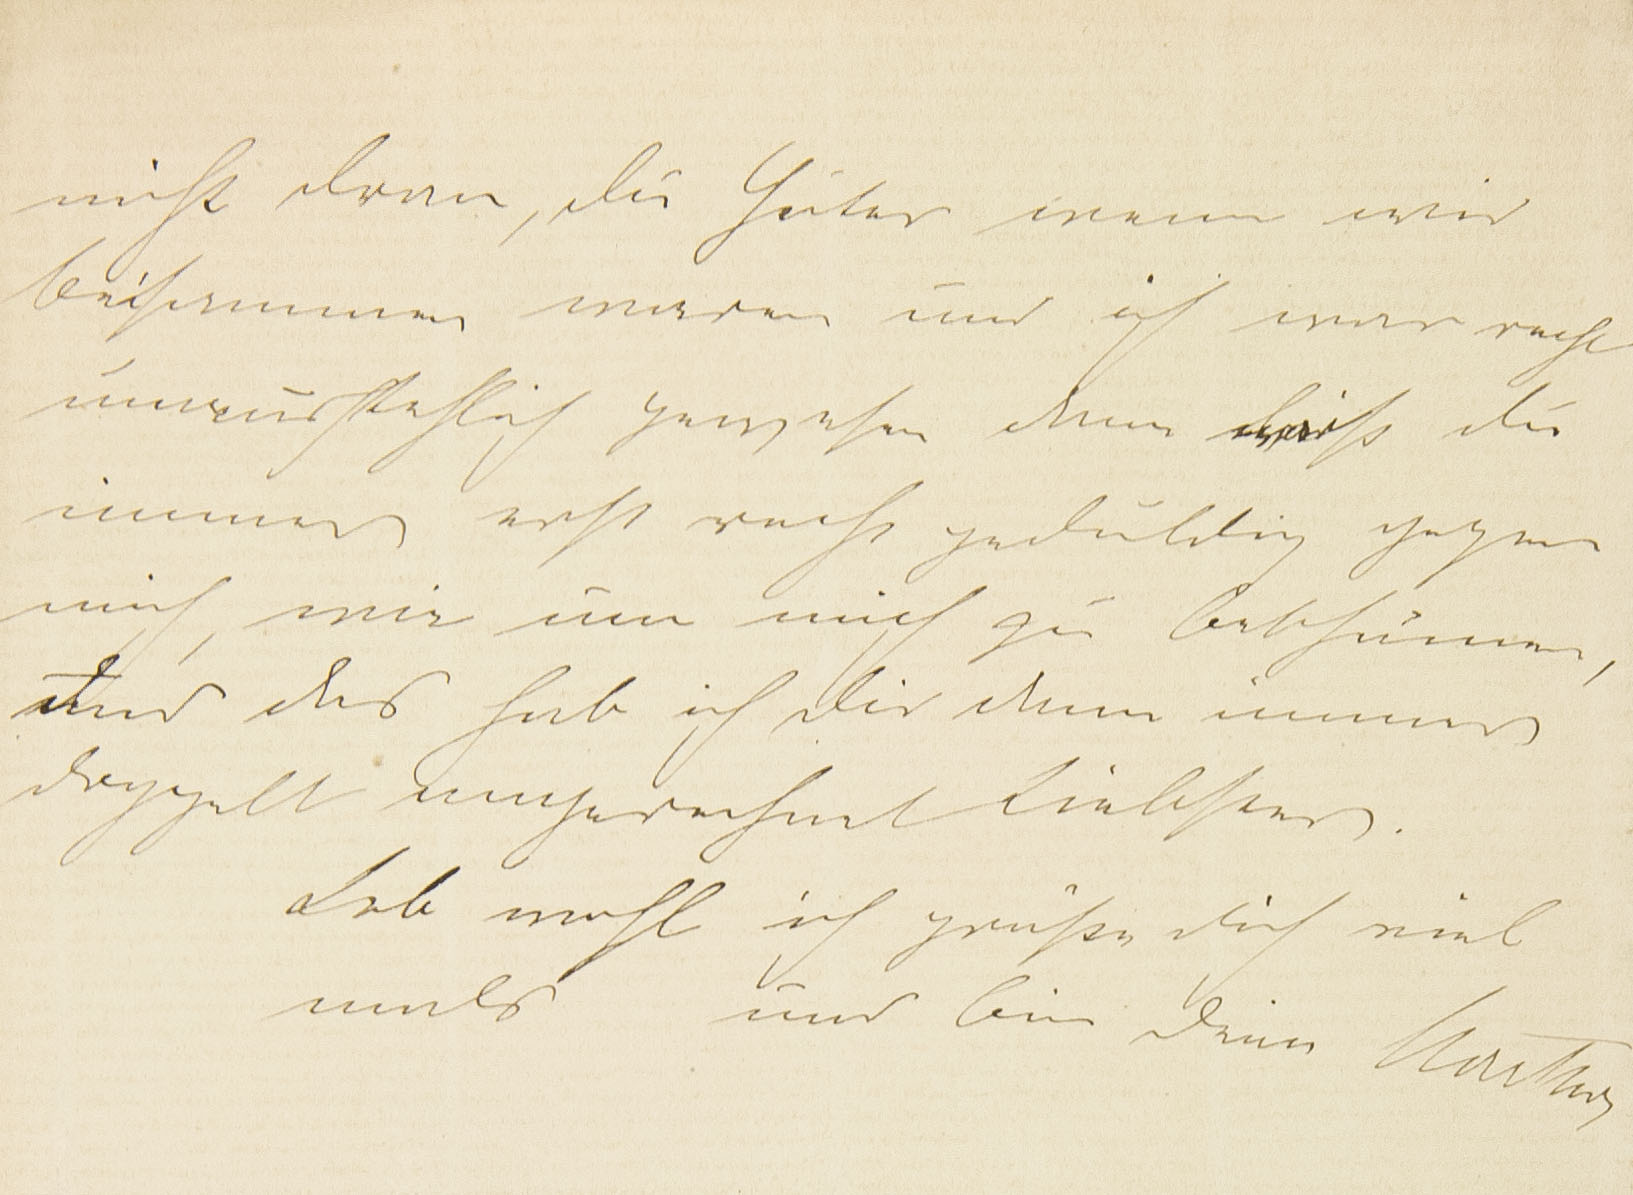 nicht dran, du Guter wenn wir
beisammen waren und ich war recht
unausstehlich gewesen dann warst du
immer erst recht geduldig gegen
mich, wie um mich zu beschämen,
und das hab ich dir dann immer
doppelt angerechnet Liebster.
Leb wohl ich grüße dich viel
mals und bin dein